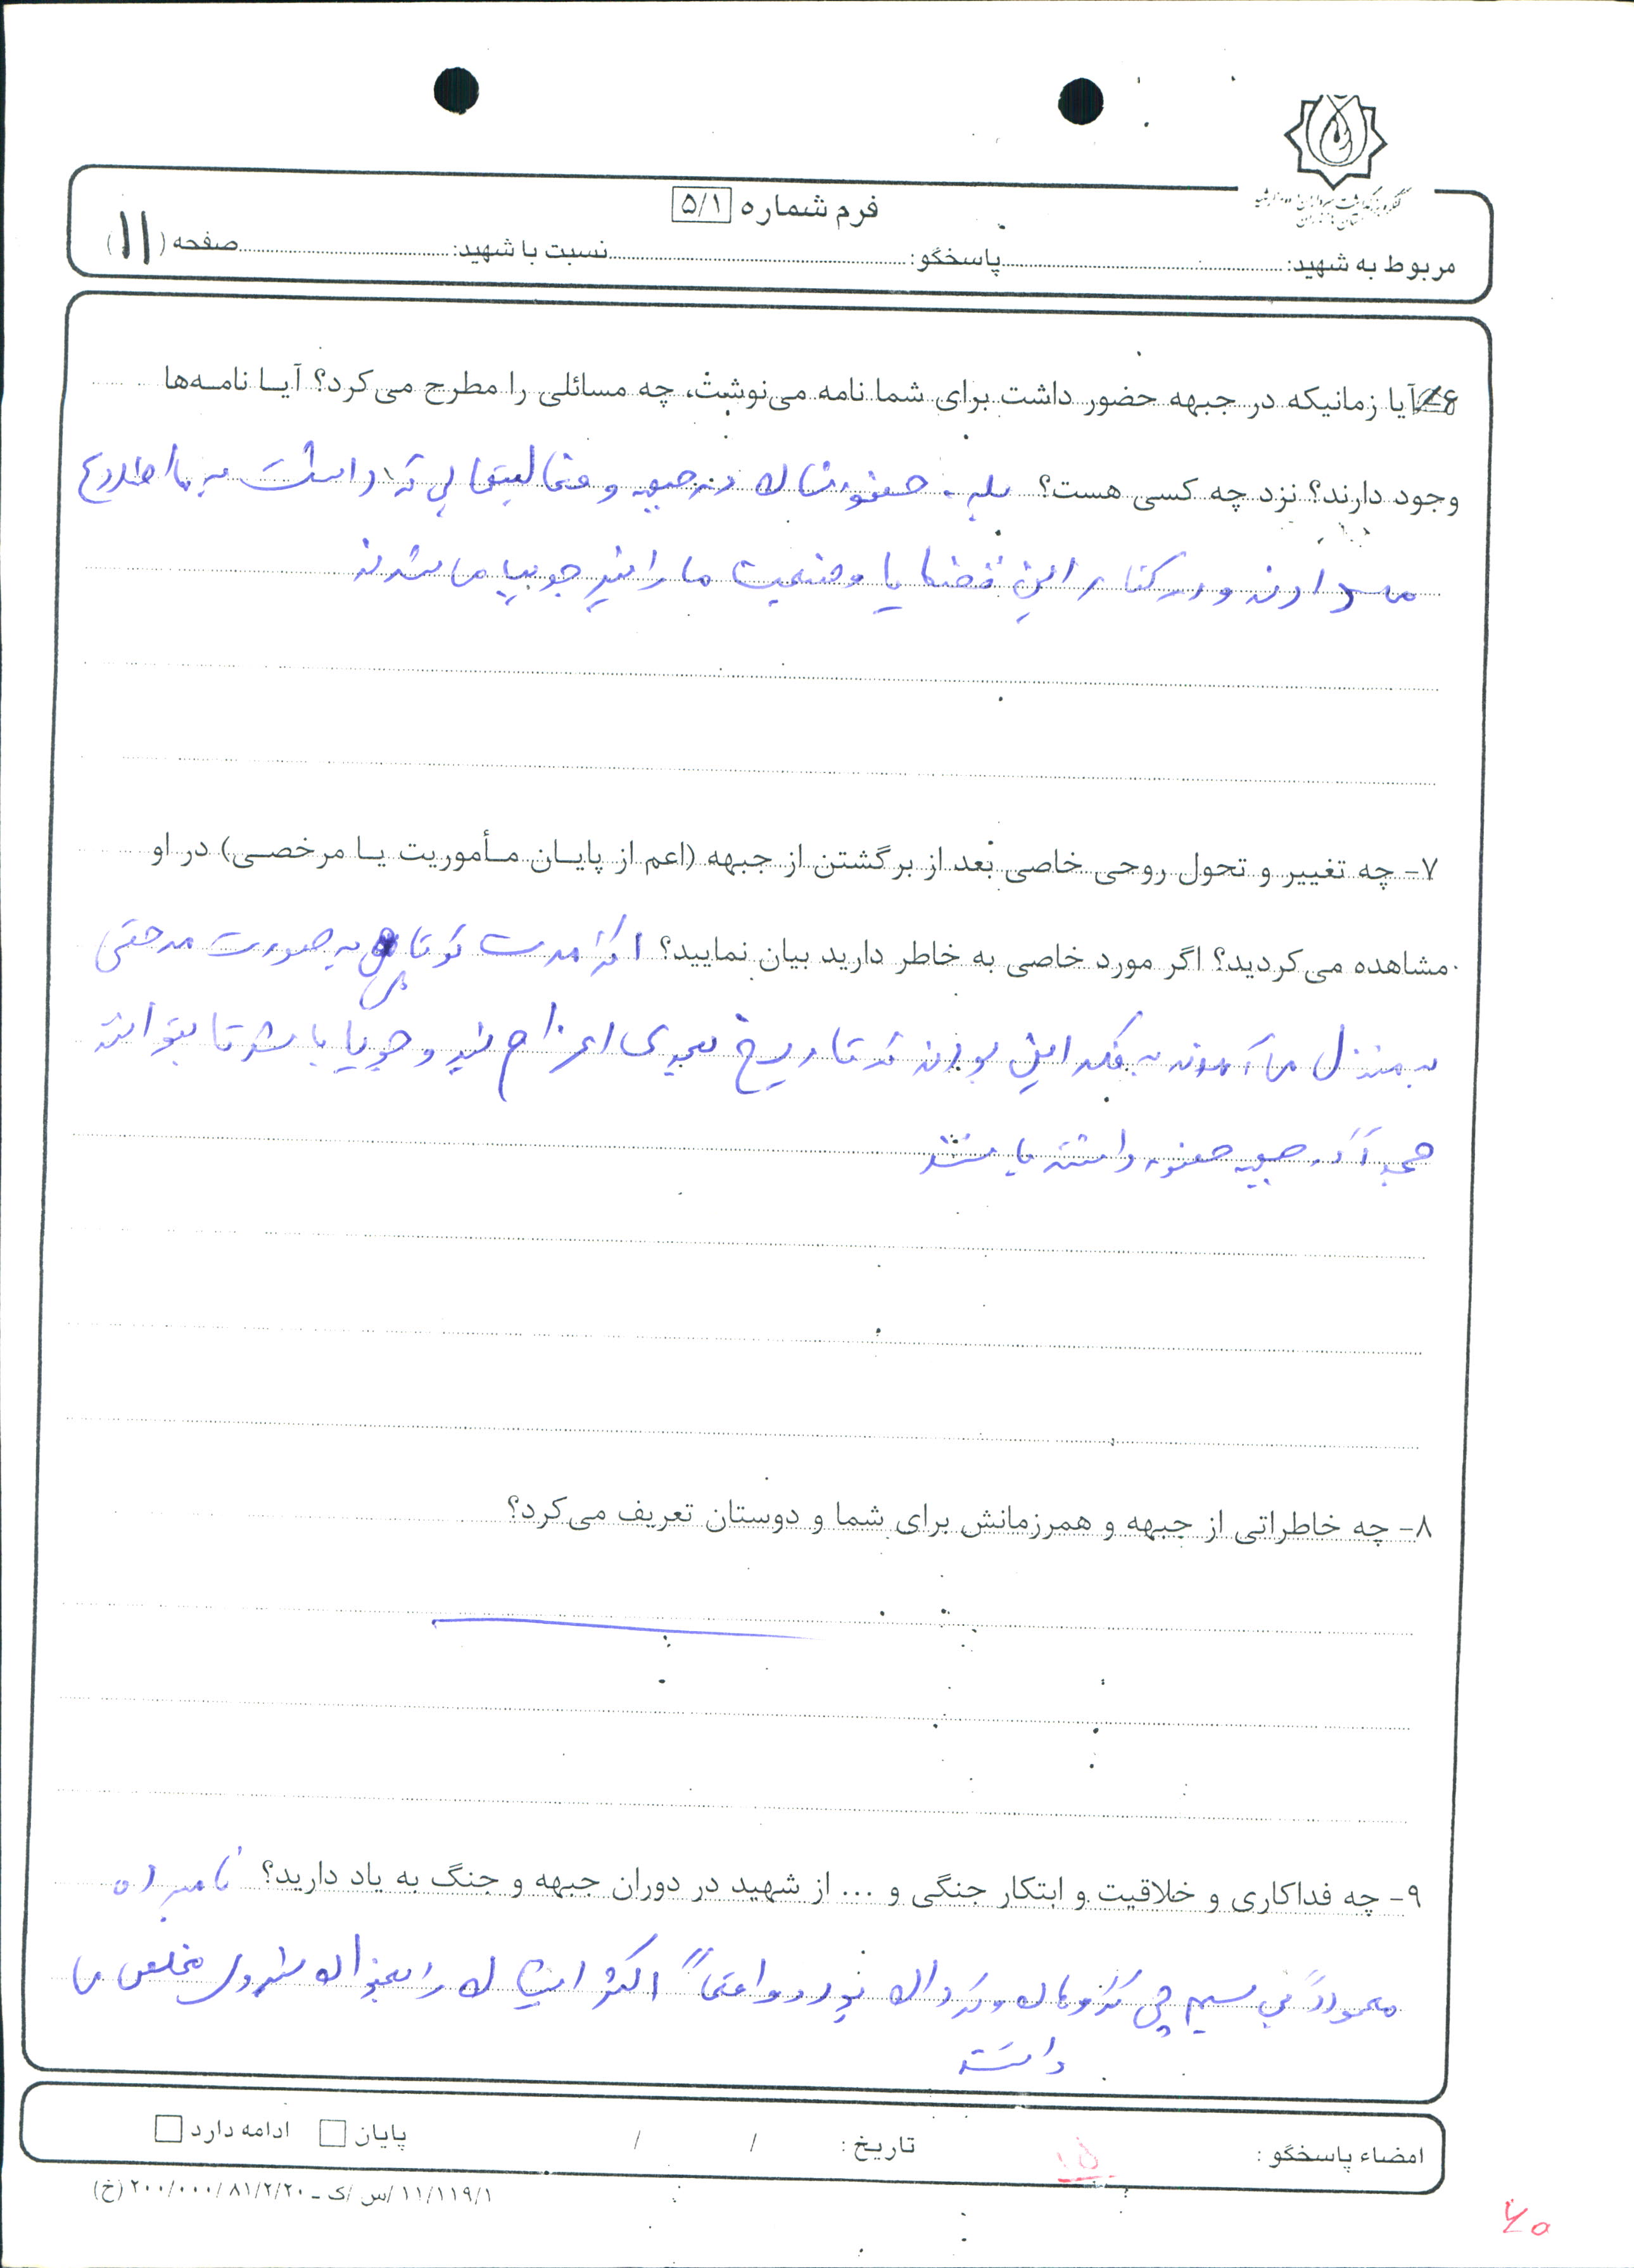 کنگره بزرگداشت سرداران و ... شهید
استان مازندران
فرم شماره ۵/۱
مربوط به شهید: پاسخگو: نسبت با شهید: صفحه (۱۱)
۶- آیا زمانیکه در جبهه حضور داشت برای شما نامه می‌نوشت، چه مسائلی را مطرح می‌کرد؟ آیا نامه‌ها
وجود دارند؟ نزد چه کسی هست؟ بله. حضورشان در جبهه و فعالیتهایی که داشت به ما اطلاع
می دادند و در کنار این قضایا وضعیت ما را نیز جویا می شدند
۷- چه تغییر و تحول روحی خاصی بعد از برگشتن از جبهه (اعم از پایان مأموریت یا مرخصی) در او
مشاهده می‌کردید؟ اگر مورد خاصی به خاطر دارید بیان نمایید؟ اگر مدت کوتاهی به صورت مرخصی
به منزل می آمدند به فکر این بودند که تاریخ بعدی اعزام نیز و جویا باشد تا بتوانند
مجدداً در جبهه حضور داشته باشند
۸- چه خاطراتی از جبهه و همرزمانش برای شما و دوستان تعریف می‌کرد؟
۹- چه فداکاری و خلاقیت و ابتکار جنگی و ... از شهید در دوران جبهه و جنگ به یاد دارید؟ نامبرده
معمولاً بی سیم چی گردان بود و اکثر ایشان را بعنوان نیروی مخلص می
دانستند
امضاء پاسخگو : تاریخ : / / پایان ادامه دارد
۱۱/۱۱۹/۱/س/ک ـ ۲۰۰/۰۰۰/۸۱/۲/۲۰ (خ)